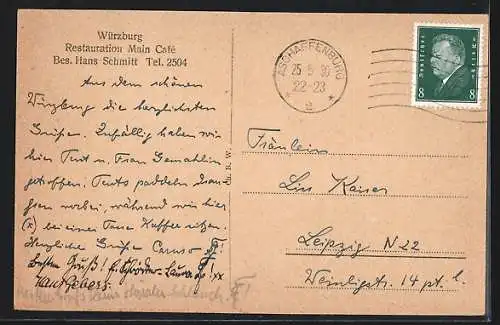 Würzburg
Restauration Main Café
Bes. Hans Schmitt Tel. 2504
Aus dem schönen
Würzburg die herzlichsten
Grüße. Zufällig haben wir
hier Text u. Frau Gemahlin
getroffen. Texts paddeln
gern vorbei, während wir hier
(x) bei einer Tasse Kaffee sitzen.
Herzliche Grüße Caruso
Besten Gruß!
Hans
ASCHAFFENBURG
25.5.30
22-23
* 2 *
Deutsches Reich
8 8
Fräulein
Lisl Kaiser
Leipzig N 22
14 pt. l.